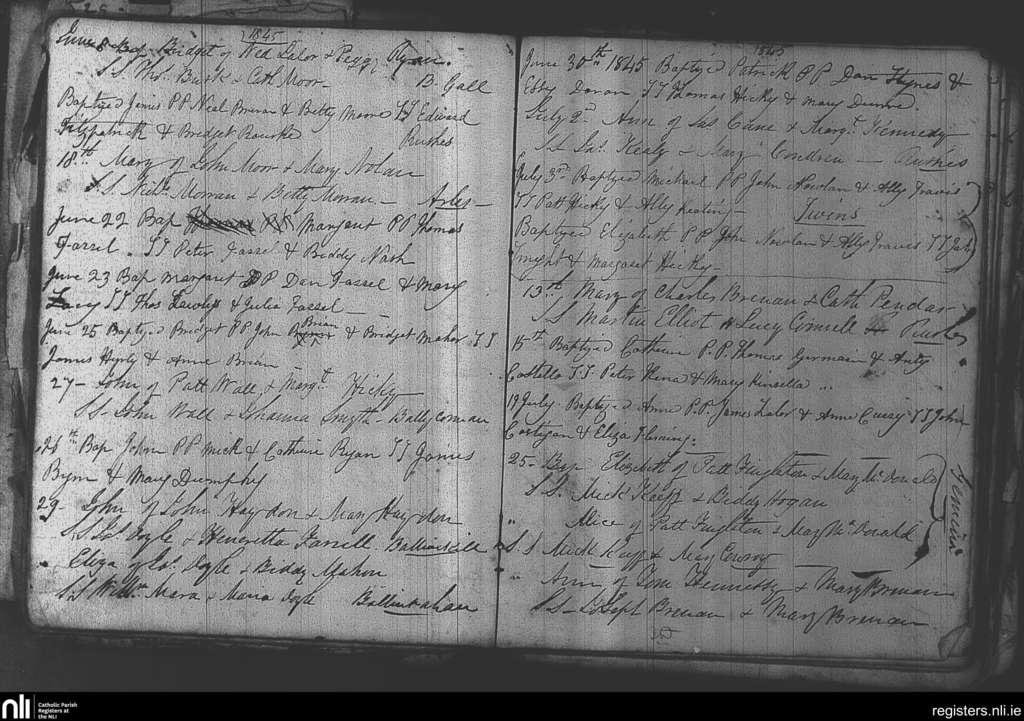 1845
June 8 Bap Bridget of Ned Lalor & Peggy Ryan.
SS Thos. Burk & Cath Moor - B. Gall
Baptyzed James PP Neal Brenan & Betty Moore SS Edward
Fitzpatrick & Bridget Rourke Rushes
18th Mary of John Moor & Mary Nolan
SS Nichs Morran & Betty Morran - Arles -
June 22 Bap Margaret PP Thomas
Farrel. SS Peter Fassel & Biddy Nash
June 23 Bap Margaret PP Dan Fassel & Mary
Lacy SS Thos & Julia Fassel -
June 25 Baptyzed Bridget PP John Brian & Bridget Maher SS
James & Anne Brian
27 - John of Patt Wall & Margt Hicky
SS - John Wall & Johanna Smyth - Ballycoman
26th Bap John PP Mick & Catherine Ryan SS James
Byrn & Mary Dumphy
29 - John of John Haydon & Mary Haydon
SS Jas. Doyle & Henrietta Farrell. Ballinakill
Eliza of Jas. Doyle & Biddy Mahon
SS Willm Mara & Maria Doyle
1845
June 30th 1845 Baptyzed Patrick PP Dan Hynes &
Ebby Donan SS Thomas Hicky & Mary Dunne
July 2d Ann of Jas Cane & Margt. Kennedy
SS Jas. Kealy & Mary Condren - Rushes
July 3rd Baptyzed Michael PP John Nowlan & Ally Travis
SS Patt Hickly & Ally Keating - Twins
Baptyzed Elizabeth PP John Nowlan & Ally Travis SS
& Margaret Hicky -
13th Mary of Charles Brenan & Cath Pendar
SS Martin Elliot & Lucy
15th Baptyzed Catherine P.P. Thomas Germain & Anty
Costello SS Peter & Mary Kinsella
19 July Baptyzed Anne P.P. James Lalor & Anne SS John
Costigan & Eliza Fleming.
25 - Bap Elizabeth of Patt & Mary McDonald
SS Mick & Biddy Hogan
" Alice of Patt & Mary McDonald
SS Mick & Mary
Gemini
" Ann of Tom Hennessy & Mary Brenan
SS - Joseph Brenan & Mary Brenan
nli
Catholic Parish
Registers at
the NLI
registers.nli.ie